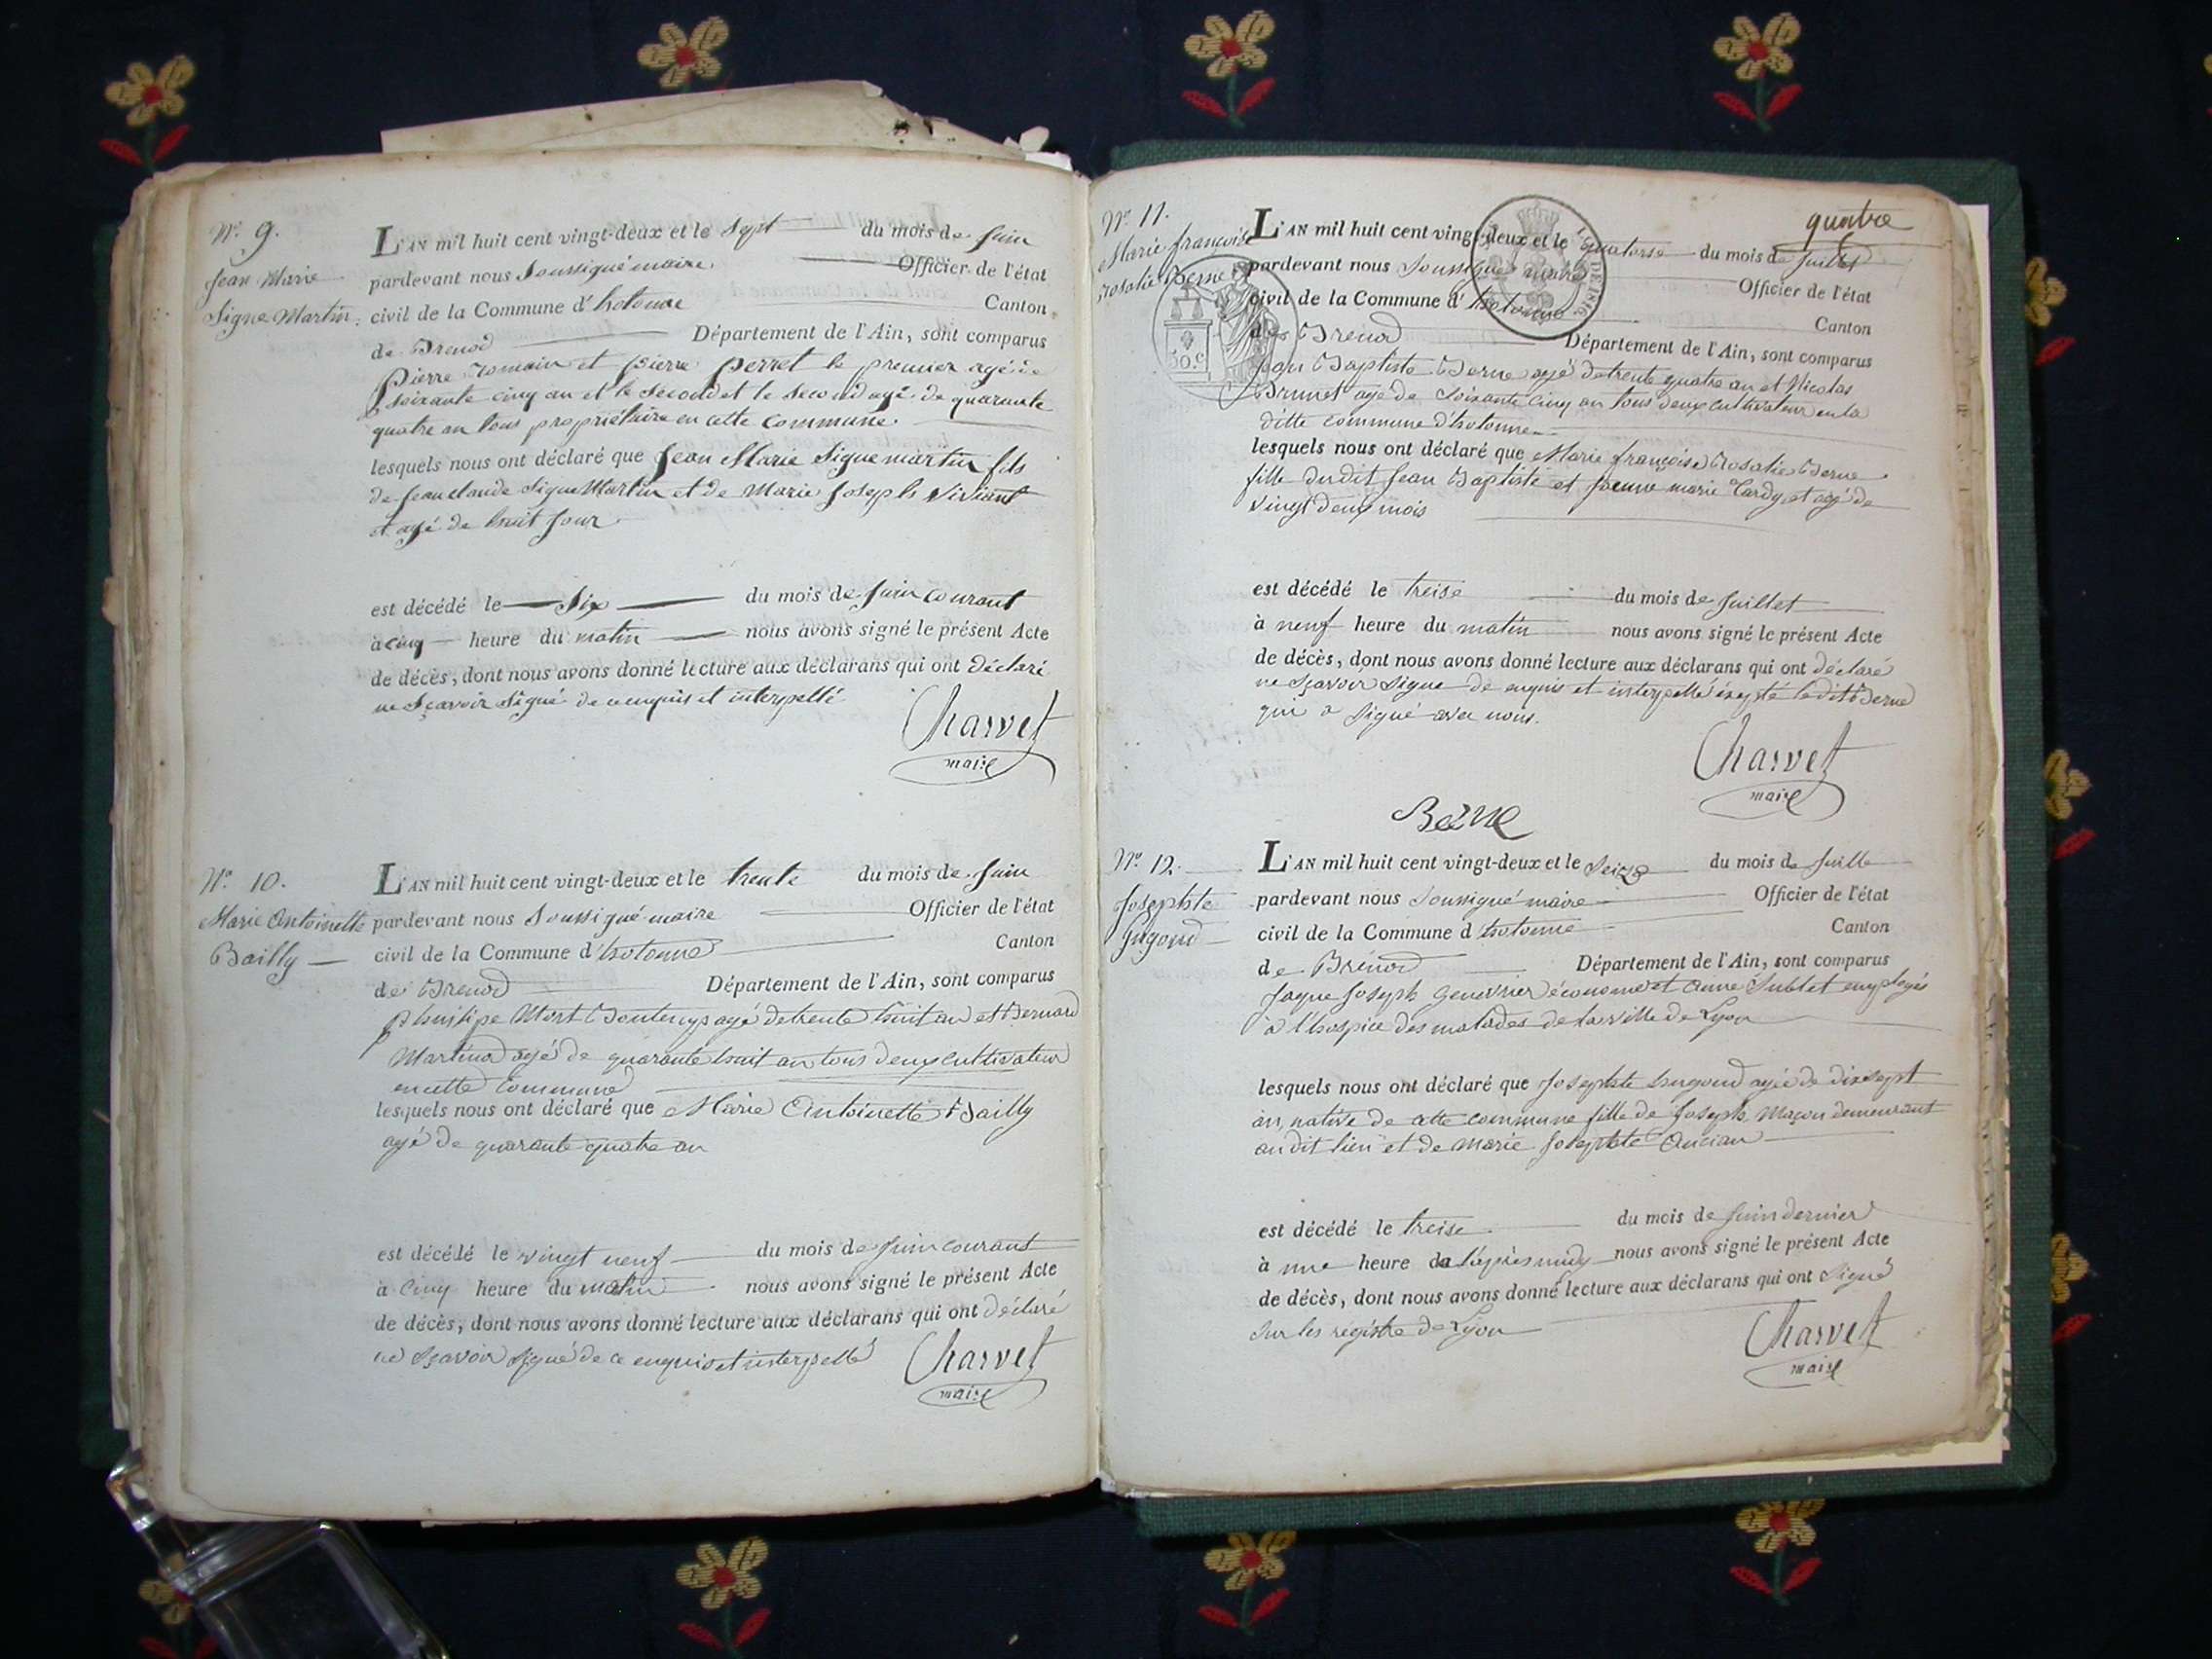 N.º 9.
Jean Marie
Signe Martin.
L'AN mil huit cent vingt-deux et le Sept du mois de Juin
pardevant nous Soussigné maire Officier de l'état
civil de la Commune d'hotonne Canton
de Brenod Département de l'Ain, sont comparus
Pierre romain et pierre perret le premier agé de
soixante cinq an et le second et le second agé de quarante
quatre an tous propriétaire en cette commune.
lesquels nous ont déclaré que Jean Marie Signemartin fils
de Jean claude Signe Martin et de Marie Joseph Viviant
et agé de huit jour
est décédé le Six du mois de Juin courant
à cinq heure du matin nous avons signé le présent Acte
de décès, dont nous avons donné lecture aux déclarans qui ont déclaré
ne Sçavoir Signé de ce enquis et interpellé
Charvet
maire
N.º 10.
Marie Antoinette
Bailly
L'AN mil huit cent vingt-deux et le trente du mois de Juin
pardevant nous Soussigné maire Officier de l'état
civil de la Commune d'hotonne Canton
de Brenod Département de l'Ain, sont comparus
agé de trente huit an et Bernard
Martinod agé de quarante huit an tous deux cultivateur
en cette Commune
lesquels nous ont déclaré que Marie Antoinette Bailly
agé de quarante quatre an
est décédé le vingt neuf du mois de Juin courant
à cinq heure du matin nous avons signé le présent Acte
de décès, dont nous avons donné lecture aux déclarans qui ont déclaré
ne Sçavoir Signé de ce enquis et interpellé
Charvet
maire
quatre
N.º 11.
Marie françoise
rosalie Berne
50.c
L'AN mil huit cent vingt-deux et le quatorse du mois de Juillet
pardevant nous Soussigné maire Officier de l'état
civil de la Commune d'hotonne Canton
de Brenod Département de l'Ain, sont comparus
Jean Baptiste Berne agé de trente quatre an et Nicolas
Brunet agé de Soixante cinq an tous deux cultivateur en la
ditte commune d'hotonne
lesquels nous ont déclaré que Marie françoise Rosalie Berne
fille du dit Jean Baptiste et marie Tardy et agé de
vingt deux mois
est décédé le treise du mois de Juillet
à neuf heure du matin nous avons signé le présent Acte
de décès, dont nous avons donné lecture aux déclarans qui ont déclaré
ne Sçavoir Signe de enquis et interpellé éxepté ledit Berne
qui a Signé avec nous.
Charvet
maire
Berne
N.º 12.
Josephte
L'AN mil huit cent vingt-deux et le Seize du mois de Juille
pardevant nous Soussigné maire Officier de l'état
civil de la Commune d hotonne Canton
de Brénod Département de l'Ain, sont comparus
Jaque Joseph Genevrier économe et Anne Sublet employés
à l'hospice des malades de la ville de Lyon
lesquels nous ont déclaré que Josephte hugond agée de dixsept
an, native de cette commune fille de Joseph Maçon demeurant
au dit lieu et de marie Josephte Ancian
est décédé le treise du mois de Juin dernier
à une heure de l'après midy nous avons signé le présent Acte
de décès, dont nous avons donné lecture aux déclarans qui ont Signé
Sur les régistre de Lyon
Charvet
maire